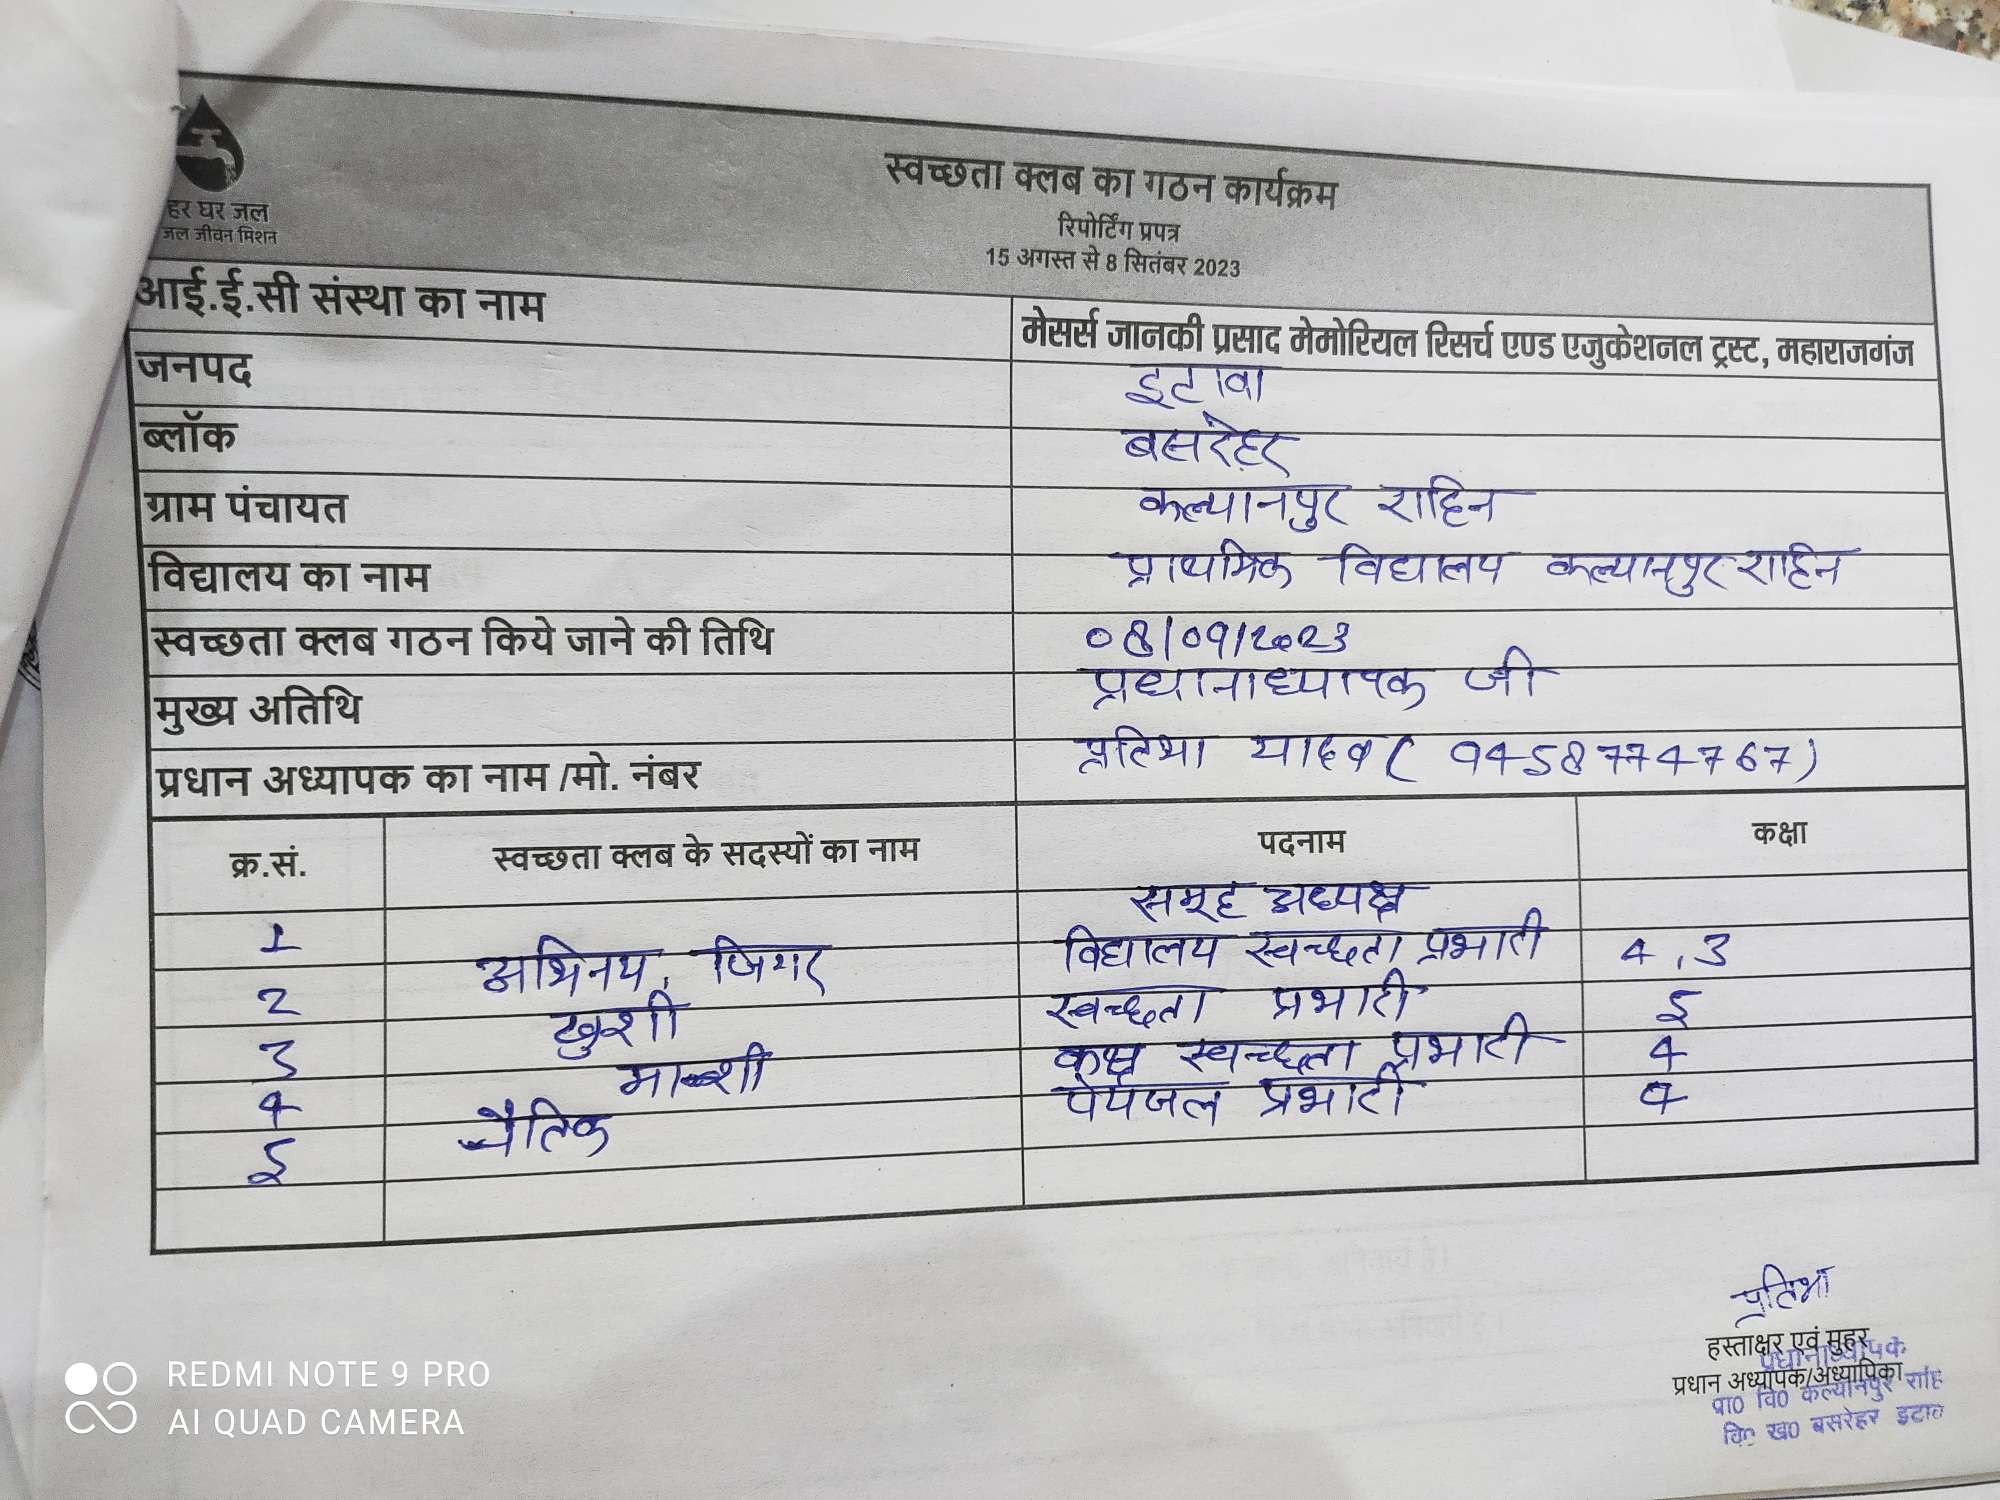 हर घर जल
जल जीवन मिशन
स्वच्छता क्लब का गठन कार्यक्रम
रिपोर्टिंग प्रपत्र
15 अगस्त से 8 सितंबर 2023
आई.ई.सी संस्था का नाम मेसर्स जानकी प्रसाद मेमोरियल रिसर्च एण्ड एजुकेशनल ट्रस्ट, महाराजगंज
जनपद इटावा
ब्लॉक बसरेहर
ग्राम पंचायत कल्यानपुर राहिन
विद्यालय का नाम प्राथमिक विद्यालय कल्यानपुर राहिन
स्वच्छता क्लब गठन किये जाने की तिथि 08/09/2023
मुख्य अतिथि प्रधानाध्यापक जी
प्रधान अध्यापक का नाम /मो. नंबर प्रतिभा यादव ( 9458774767)
क्र.सं. स्वच्छता क्लब के सदस्यों का नाम पदनाम कक्षा
1 समूह अध्यक्ष
2 अभिनय, जिगर विद्यालय स्वच्छता प्रभारी 4,3
3 खुशी स्वच्छता प्रभारी 5
4 कक्ष स्वच्छता प्रभारी 4
5 नैतिक पेयजल प्रभारी 4
प्रतिभा
हस्ताक्षर एवं मुहर
प्रधानाध्यापक
प्रधान अध्यापक/अध्यापिका
प्रा0 वि0 कल्यानपुर राहि
वि0 ख0 बसरेहर इटावा
REDMI NOTE 9 PRO
AI QUAD CAMERA